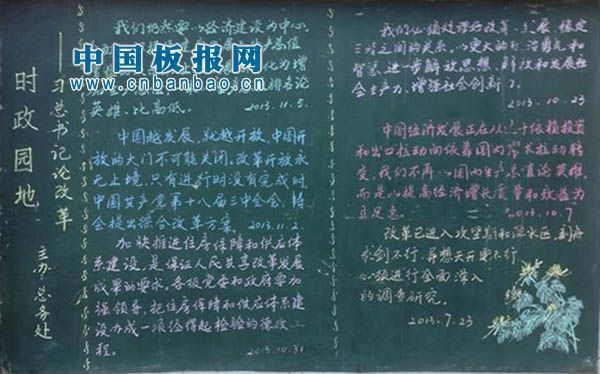 时政园地
——习总书记论改革
主办:总务处
我们仍然要以经济建设为中心
中国板报网
www.cnbanbao.cn
化为增
排名论
英雄、比高低。 2013.11.5.
中国越发展,就越开放,中国开
放的大门不可能关闭。改革开放永
无止境,只有进行时没有完成时。
中国共产党第十八届三中全会,将
会提出综合改革方案。 2013.11.2.
加快推进住房保障和供应体
系建设,是保证人民共享改革发展
成果的要求。各级党委和政府要加
强领导,把住房保障和供应体系建
设办成一项经得起检验的德政工
程。 2013.10.31
我们必须处理好改革、发展、稳定
三者之间的关系,以更大的
智慧,进一步解放思想、解放和发展社
会生产力、增强社会创新
2013.10.23
中国经济发展正在从以往依赖投资
和出口拉动向依靠国内需求拉动转
变,我们不再以国内生产总值论英雄,
而是以提高经济增长质量和效益为
立足点。 2013.10.7
改革已进入攻坚期和深水区,刻舟
求剑不行,异想天开更不行
必须进行全面深入
的调查研究。
2013.7.23